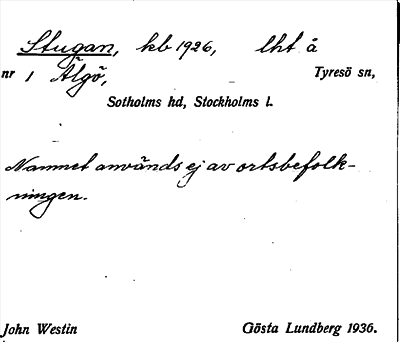 Stugan, kb 1926, lht å
nr 1 Älgö, Tyresö sn,
Sotholms hd, Stockholms l.
Namnet används ej av ortsbefolk-
ningen.
John Westin Gösta Lundberg 1936.